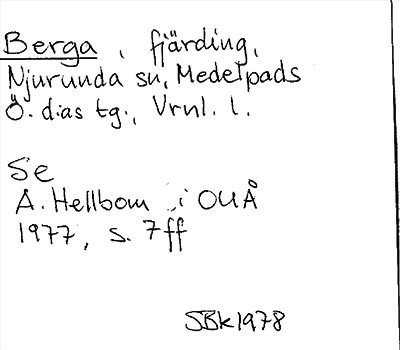 Berga, fjärding,
Njurunda sn, Medelpads
Ö. dias tg., Vrnl. l.
Se
A. Hellbom i OUÅ
1977, s. 7ff
SBk1978